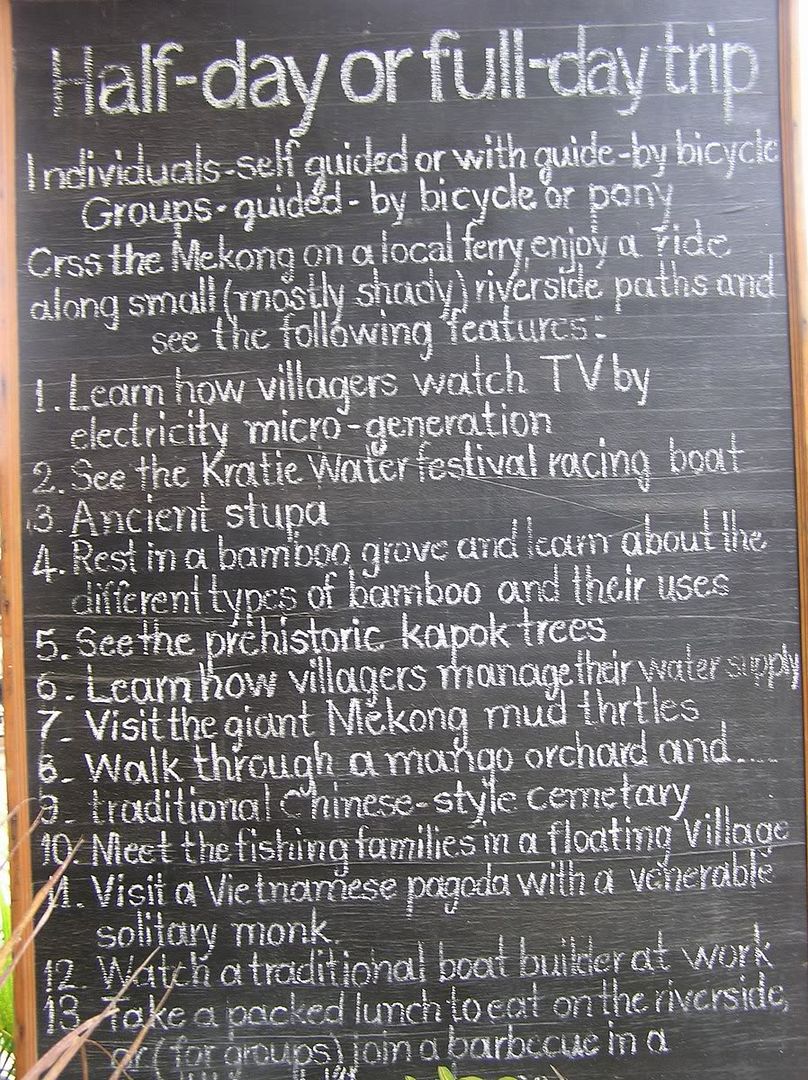 Half-day or full-day trip
Individuals-self guided or with guide-by bicycle
Groups-guided-by bicycle or pony
Crss the Mekong on a local ferry, enjoy a ride
along small (mostly shady) riverside paths and
see the following features:
1. Learn how villagers watch TV by
electricity micro-generation
2. See the Kratie Water festival racing boat
3. Ancient stupa
4. Rest in a bamboo grove and learn about the
different types of bamboo and their uses
5. See the prehistoric kapok trees
6. Learn how villagers manage their water supply
7. Visit the giant Mekong mud thrtles
8. Walk through a mango orchard and.....
9. traditional Chinese-style cemetary
10. Meet the fishing families in a floating Village
11. Visit a Vietnamese pagoda with a venerable
solitary monk.
12. Watch a traditional boat builder at work
13. Take a packed lunch to eat on the riverside,
or (for groups) join a barbecue in a